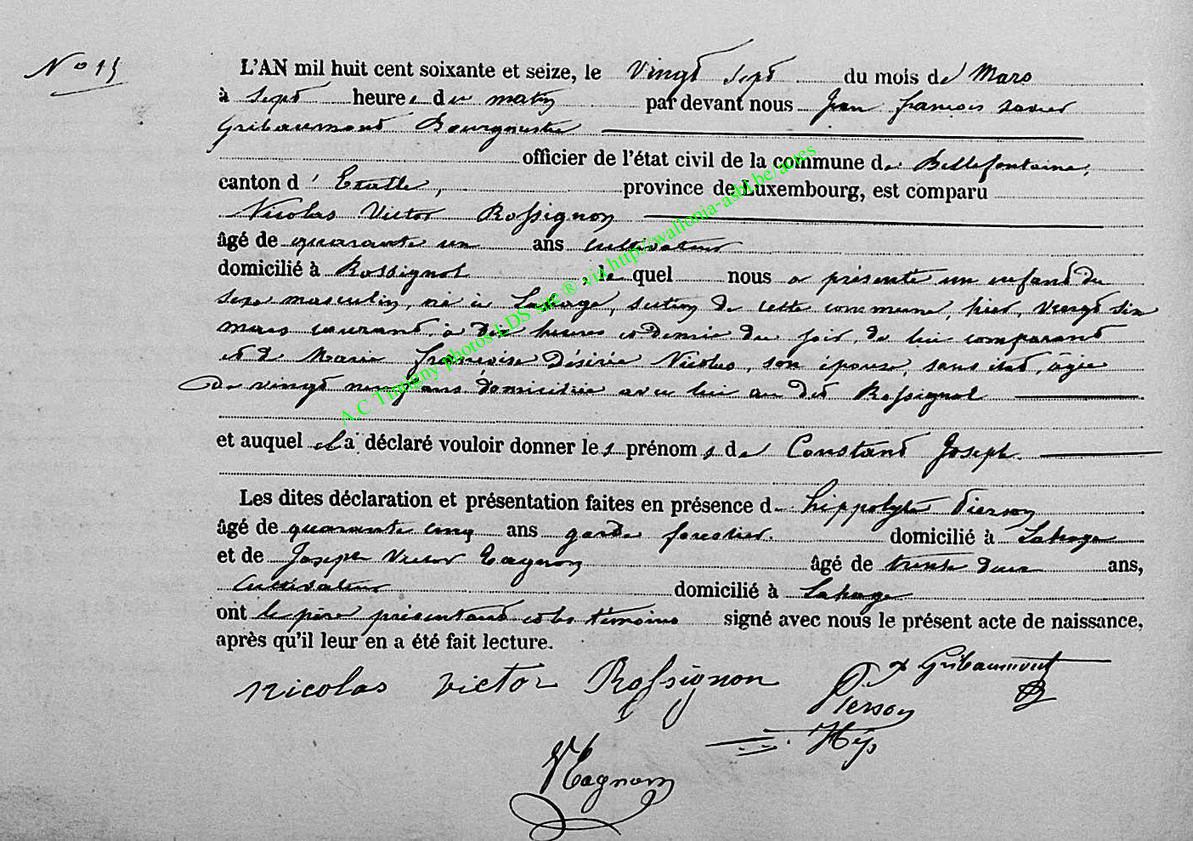 N° 15
L'AN mil huit cent soixante et seize, le vingt sept du mois de Mars
à sept heure s du matin par devant nous Jean François Xavier
Gribaumont Bourgmestre
officier de l'état civil de la commune de Bellefontaine,
canton d' Etalle, province de Luxembourg, est comparu
Nicolas Victor Rossignon
âgé de quarante un ans cultivateur
domicilié à Rossignol, le quel nous a présenté un enfant du
sexe masculin, né à Lahage, section de cette commune, hier, vingt six
mars courant à dix heures et demie du soir, de lui comparant
et de Marie Françoise Désirée Nicolas, son épouse, sans état, âgée
de vingt neuf ans domiciliée avec lui au dit Rossignol
et auquel il a déclaré vouloir donner le s prénom s de Constant Joseph.
Les dites déclaration et présentation faites en présence d' hippolyte Pierson
âgé de quarante cinq ans garde forestier. domicilié à Lahage
et de Joseph Victor Tagnon âgé de trente deux ans,
cultivateur domicilié à Lahage
ont le père présentant et les témoins signé avec nous le présent acte de naissance,
après qu'il leur en a été fait lecture.
Nicolas Victor Rossignon
Gribaumont
Pierson
Hip
V Tagnon
A.C Tintigny photos LDS site ® via http://wallonia-asbl.be/actes